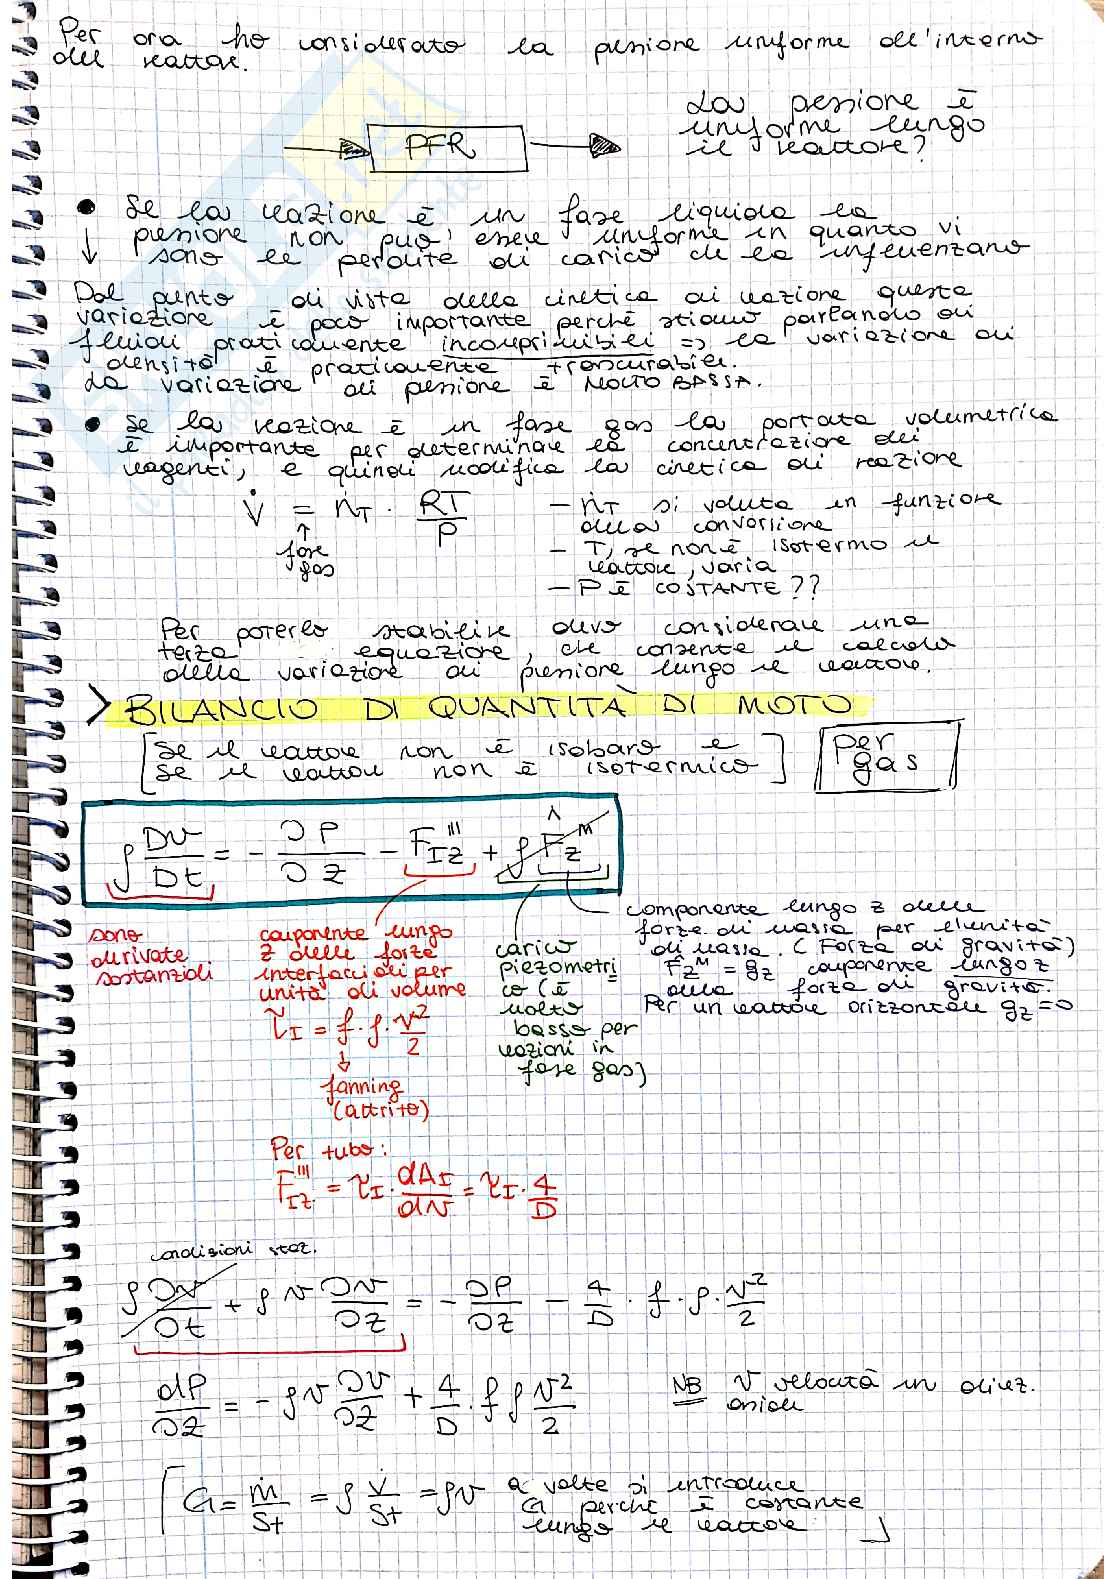 Per ora ho considerato la pressione uniforme all'interno
del reattore.
PFR
La pressione è
uniforme lungo
il reattore?
• Se la reazione è in fase liquida la
pressione non può essere uniforme in quanto vi
↓ sono le perdite di carico che la influenzano
Dal punto di vista della cinetica di reazione questa
variazione è poco importante perché stiamo parlando di
fluidi praticamente incomprimibili => la variazione di
densità è praticamente trascurabile.
La variazione di pressione è MOLTO BASSA.
• Se la reazione è in fase gas la portata volumetrica
è importante per determinare la concentrazione dei
reagenti, e quindi modifica la cinetica di reazione
V̇ = ṅT · RT/P
↑
fase
gas
- ṅT si valuta in funzione
della conversione
- T, se non è isotermo il
reattore, varia
- P È COSTANTE??
Per poterlo stabilire devo considerare una
terza equazione, che consente il calcolo
della variazione di pressione lungo il reattore.
> BILANCIO DI QUANTITÀ DI MOTO
[se il reattore non è isobaro e
se il reattore non è isotermico]
per
gas
ρ Dv/Dt = - ∂P/∂z - F'''Iz + ρ F̂zᴹ
sono
derivate
sostanziali
componente lungo
z delle forze
interfacciali per
unità di volume
τI = f · ρ · v²/2
↓
fanning
(attrito)
carico
piezometri=
co (è
molto
basso per
reazioni in
fase gas)
componente lungo z delle
forze di massa per l'unità
di massa. (Forza di gravità)
F̂zᴹ = gz componente lungo z
della forza di gravità.
Per un reattore orizzontale gz=0
Per tubo:
F'''Iz = τI · dAI/dV = τI · 4/D
condizioni staz.
ρ ∂v/∂t + ρ v ∂v/∂z = - ∂P/∂z - 4/D · f · ρ · v²/2
dP/∂z = - ρ v ∂v/∂z + 4/D · f ρ v²/2
NB v velocità in direz.
assiale
G = ṁ/St = ρ V̇/St = ρv a volte si introduce
G perché è costante
lungo il reattore